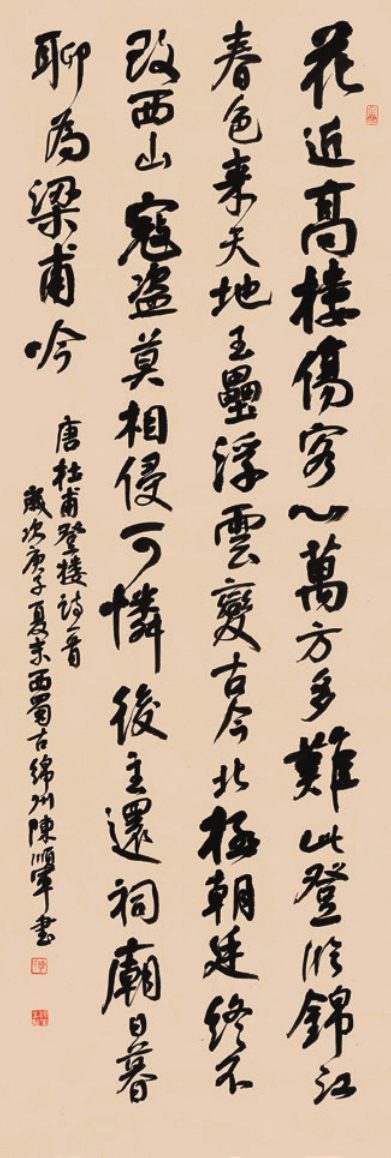 花近高樓傷客心萬方多難此登臨錦江
春色来天地玉壘浮雲變古今北極朝廷終不
改西山寇盗莫相侵可憐後主還祠廟日暮
聊為梁甫吟
唐杜甫登樓詩一首
歲次庚子夏末西蜀古綿州陳順軍書